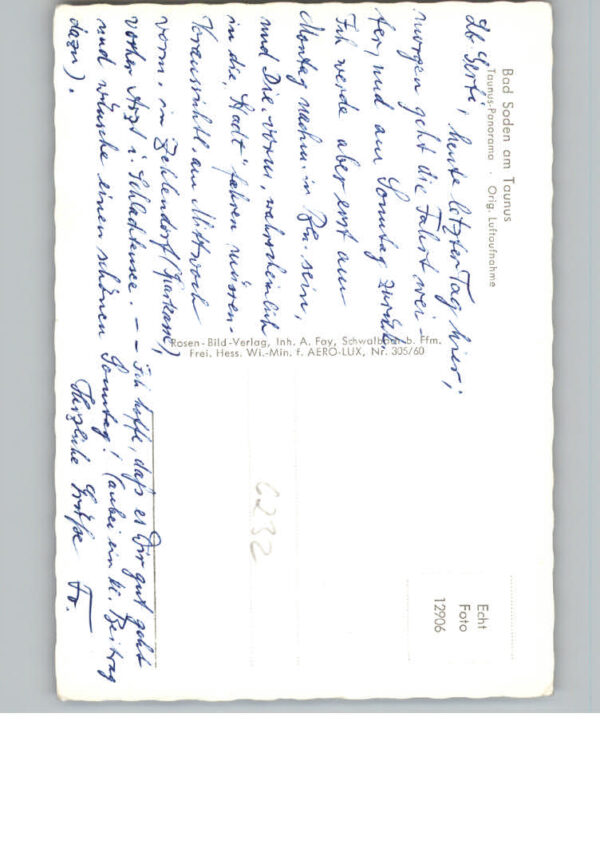 Bad Soden am Taunus
Taunus-Panorama · Orig. Luftaufnahme
heute letzter Tag hier;
morgen geht die Fahrt wei-
ter, und am Sonntag zurück.
Ich werde aber erst am
Montag nachm. in Bln. sein,
und Die. vorm. wahrscheinlich
in die "Stadt" fahren müssen.
Voraussichtl. am Mittwoch
vorm. in Zehlendorf (Kurkasse),
vorher Arzt i. Schlachtensee. – – Ich hoffe, daß es Dir gut geht
und wünsche einen schönen Sonntag! (anbei ein kl. Beitrag
dazu).
Herzliche Grüße Fr.
Rosen-Bild-Verlag, Inh. A. Fay, Schwalbach b. Ffm.
Frei. Hess. Wi.-Min. f. AERO-LUX, Nr. 305/60
6232
Echt
Foto
12906